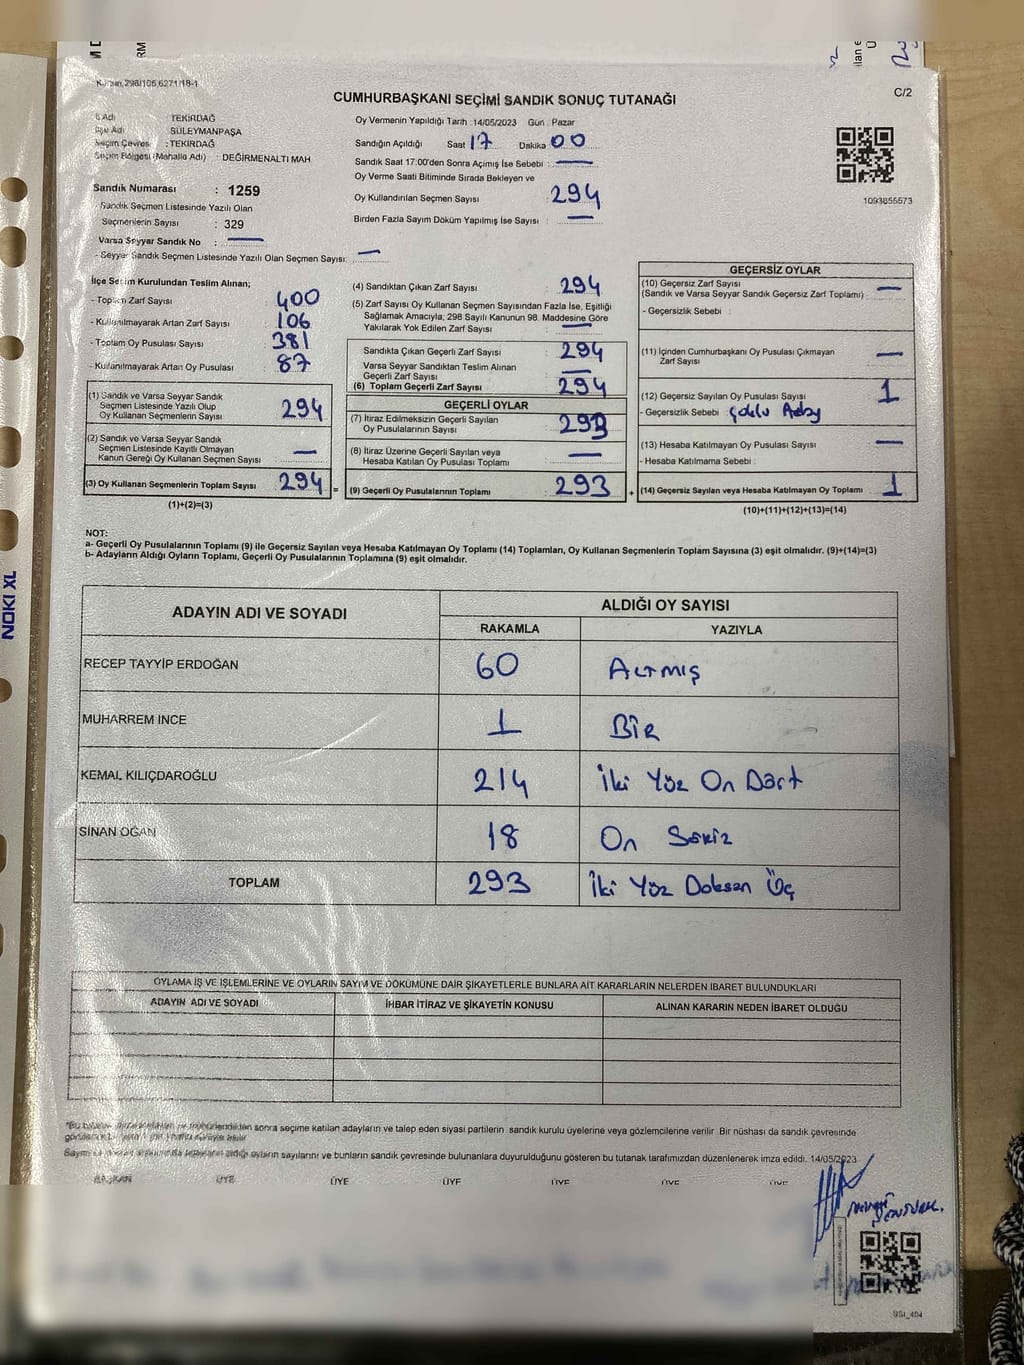 298/106,6271/18-1
C/2
CUMHURBAŞKANI SEÇİMİ SANDIK SONUÇ TUTANAĞI
Adı : TEKİRDAĞ
Adı : SÜLEYMANPAŞA
Seçim Çevresi : TEKİRDAĞ
Seçim Bölgesi (Mahalle Adı) : DEĞİRMENALTI MAH
Sandık Numarası : 1259
Sandık Seçmen Listesinde Yazılı Olan
Seçmenlerin Sayısı : 329
Varsa Seyyar Sandık No : —
- Seyyar Sandık Seçmen Listesinde Yazılı Olan Seçmen Sayısı: —
Oy Vermenin Yapıldığı Tarih : 14/05/2023 Gün : Pazar
Sandığın Açıldığı Saat 17 Dakika 00
Sandık Saat 17:00'den Sonra Açılmış İse Sebebi : —
Oy Verme Saati Bitiminde Sırada Bekleyen ve
Oy Kullandırılan Seçmen Sayısı : 294
Birden Fazla Sayım Döküm Yapılmış İse Sayısı : —
1093855573
İlçe Seçim Kurulundan Teslim Alınan;
- Toplam Zarf Sayısı : 400
- Kullanılmayarak Artan Zarf Sayısı : 106
- Toplam Oy Pusulası Sayısı : 381
- Kullanılmayarak Artan Oy Pusulası : 87
(1) Sandık ve Varsa Seyyar Sandık
Seçmen Listesinde Yazılı Olup
Oy Kullanan Seçmenlerin Sayısı : 294
(2) Sandık ve Varsa Seyyar Sandık
Seçmen Listesinde Kayıtlı Olmayan
Kanun Gereği Oy Kullanan Seçmen Sayısı : —
(3) Oy Kullanan Seçmenlerin Toplam Sayısı : 294
(1)+(2)=(3)
(4) Sandıktan Çıkan Zarf Sayısı : 294
(5) Zarf Sayısı Oy Kullanan Seçmen Sayısından Fazla İse, Eşitliği
Sağlamak Amacıyla; 298 Sayılı Kanunun 98. Maddesine Göre
Yakılarak Yok Edilen Zarf Sayısı : —
Sandıkta Çıkan Geçerli Zarf Sayısı : 294
Varsa Seyyar Sandıktan Teslim Alınan
Geçerli Zarf Sayısı : —
(6) Toplam Geçerli Zarf Sayısı : 294
GEÇERLİ OYLAR
(7) İtiraz Edilmeksizin Geçerli Sayılan
Oy Pusulalarının Sayısı : 293
(8) İtiraz Üzerine Geçerli Sayılan veya
Hesaba Katılan Oy Pusulası Toplamı : —
= (9) Geçerli Oy Pusulalarının Toplamı : 293
GEÇERSİZ OYLAR
(10) Geçersiz Zarf Sayısı
(Sandık ve Varsa Seyyar Sandık Geçersiz Zarf Toplamı) : —
- Geçersizlik Sebebi :
(11) İçinden Cumhurbaşkanı Oy Pusulası Çıkmayan
Zarf Sayısı : —
(12) Geçersiz Sayılan Oy Pusulası Sayısı : 1
- Geçersizlik Sebebi : Çoklu Aday
(13) Hesaba Katılmayan Oy Pusulası Sayısı : —
- Hesaba Katılmama Sebebi :
+ (14) Geçersiz Sayılan veya Hesaba Katılmayan Oy Toplamı : 1
(10)+(11)+(12)+(13)=(14)
NOT:
a- Geçerli Oy Pusulalarının Toplamı (9) ile Geçersiz Sayılan veya Hesaba Katılmayan Oy Toplamı (14) Toplamları, Oy Kullanan Seçmenlerin Toplam Sayısına (3) eşit olmalıdır. (9)+(14)=(3)
b- Adayların Aldığı Oyların Toplamı, Geçerli Oy Pusulalarının Toplamına (9) eşit olmalıdır.
ADAYIN ADI VE SOYADI ALDIĞI OY SAYISI
RAKAMLA YAZIYLA
RECEP TAYYİP ERDOĞAN 60 ALTMIŞ
MUHARREM İNCE 1 BİR
KEMAL KILIÇDAROĞLU 214 İki Yüz On Dört
SİNAN OĞAN 18 On Sekiz
TOPLAM 293 İki Yüz Doksan Üç
OYLAMA İŞ VE İŞLEMLERİNE VE OYLARIN SAYIM VE DÖKÜMÜNE DAİR ŞİKAYETLERLE BUNLARA AİT KARARLARIN NELERDEN İBARET BULUNDUKLARI
ADAYIN ADI VE SOYADI İHBAR İTİRAZ VE ŞİKAYETİN KONUSU ALINAN KARARIN NEDEN İBARET OLDUĞU
sonra seçime katılan adayların ve talep eden siyasi partilerin sandık kurulu üyelerine veya gözlemcilerine verilir. Bir nüshası da sandık çevresinde
oyların sayılarını ve bunların sandık çevresinde bulunanlara duyurulduğunu gösteren bu tutanak tarafımızdan düzenlenerek imza edildi. 14/05/2023
BAŞKAN ÜYE ÜYE ÜYE ÜYE ÜYE ÜYE
NOKI XL